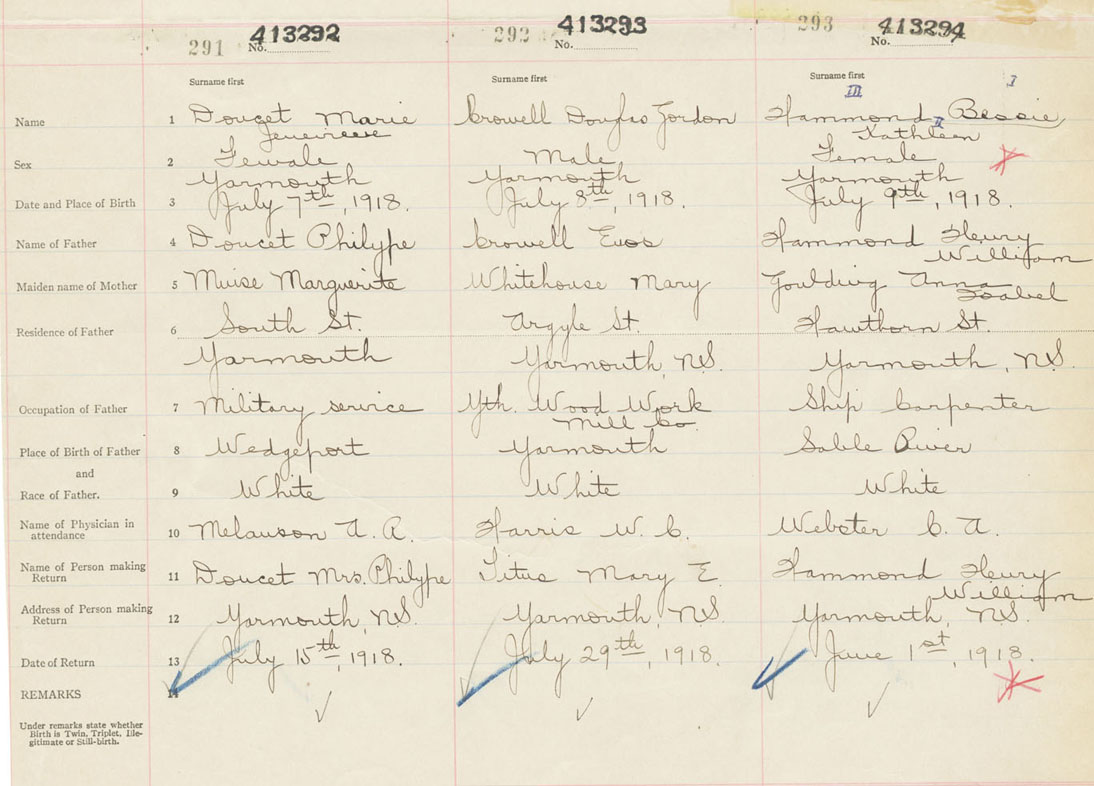 291 No. 413292 292 No. 413293 293 No. 413294
Surname first Surname first Surname first
III I
Name 1 Doucet Marie Crowell Douglas Gordon Hammond II Bessie
Jenevieve Kathleen
Sex 2 Female Male Female
Yarmouth Yarmouth Yarmouth
Date and Place of Birth 3 July 7th, 1918. July 8th, 1918. July 9th, 1918.
Name of Father 4 Doucet Philype Crowell Enos Hammond Henry
William
Maiden name of Mother 5 Muise Marguerite Whitehouse Mary Goulding Anna
Isabel
Residence of Father 6 South St. Argyle St. Hawthorn St.
Yarmouth Yarmouth, N.S. Yarmouth, N.S.
Occupation of Father 7 Military service Yth. Wood Work Ship Carpenter
Mill Co.
Place of Birth of Father 8 Wedgeport Yarmouth Sable River
and
Race of Father. 9 White White White
Name of Physician in
attendance 10 Melanson A. A. Harris W. C. Webster C. A.
Name of Person making
Return 11 Doucet Mrs. Philype Titus Mary E. Hammond Henry
William
Address of Person making
Return 12 Yarmouth, N.S. Yarmouth, N.S. Yarmouth, N.S.
Date of Return 13 July 15th, 1918. July 29th, 1918. June 1st, 1918.
REMARKS 14
Under remarks state whether
Birth is Twin, Triplet, Ille-
gitimate or Still-birth.